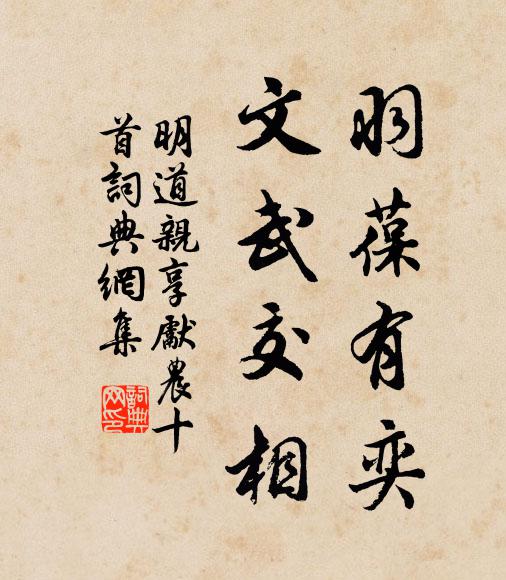 羽葆有奕
文武交相
明道親享獻農十
首詞典網集
詞典网印